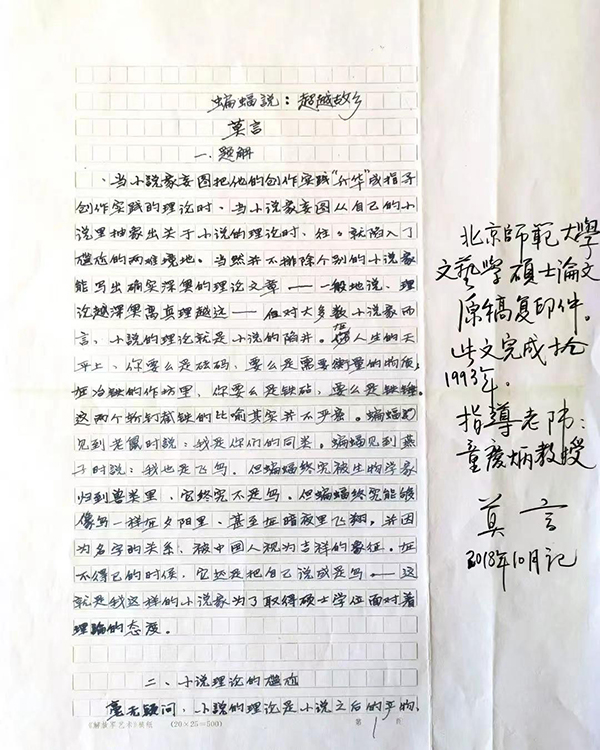 蝙蝠說：超越故乡
莫言
一.题解
、当小說家妄图把他的创作实践“升华”成指导
创作实践的理论时、当小說家妄图从自己的小
说里抽象出关于小说的理论时，往。就陷入了
尴尬的两难境地。当然并不排除个别的小说家
能写出确实深奥的理论文章——一般地说，理
论越深奥离真理越近——但对大多数小说家而
言，小说的理论就是小说的陷井。在人生的天
平上，你要么是砝码，要么是需要衡量的物质；
在冶铁的作坊里，你要么是铁砧，要么是铁锤。
这两个斩钉截铁的比喻其实并不严密。蝙蝠
见到老鼠时説：我是你们的同类。蝙蝠见到燕
子时説：我也是飞鸟。但蝙蝠终究被生物学家
归到兽类里，它终究不是鸟。但蝙蝠终究能够
像鸟一样在夕阳里、甚至在暗夜里飞翔。并因
为名字的关系，被中国人视为吉祥的象征。在
不得已的时侯，它总是把自己说成是鸟。——这
就是我这样的小说家为了取得硕士学位面对着
理論的态度。
二、小说理论的尴尬
毫无疑问，小说的理论是小说之后的产物，
《解放军艺术》学院 (20×25=500) 第 1 页
北京師範大學
文藝學碩士論文
原稿复印件。
此文完成於
1993年。
指導老师：
童慶炳教授
莫言
2018年10月记